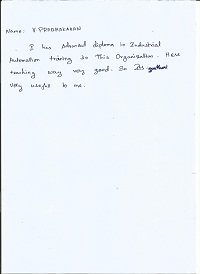 Name: V PRABHAKARAN
I has Advanced diploma in Industrial
Automation training in This Organisation. Here
teaching way very good. So Its
very useful to me.